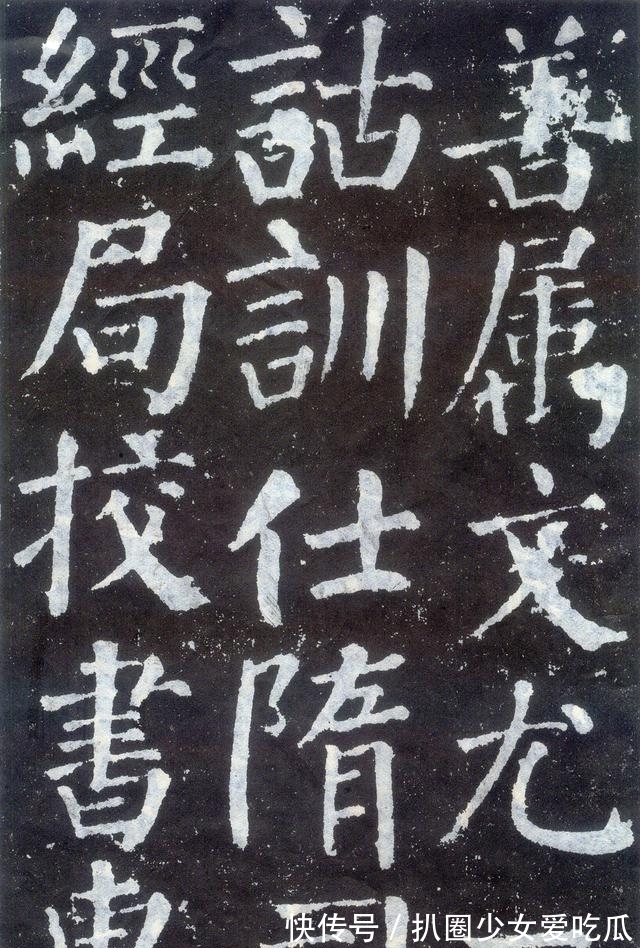 善属文尤
詁訓仕隋
經局挍書
快传号 / 扒圈少女爱吃瓜